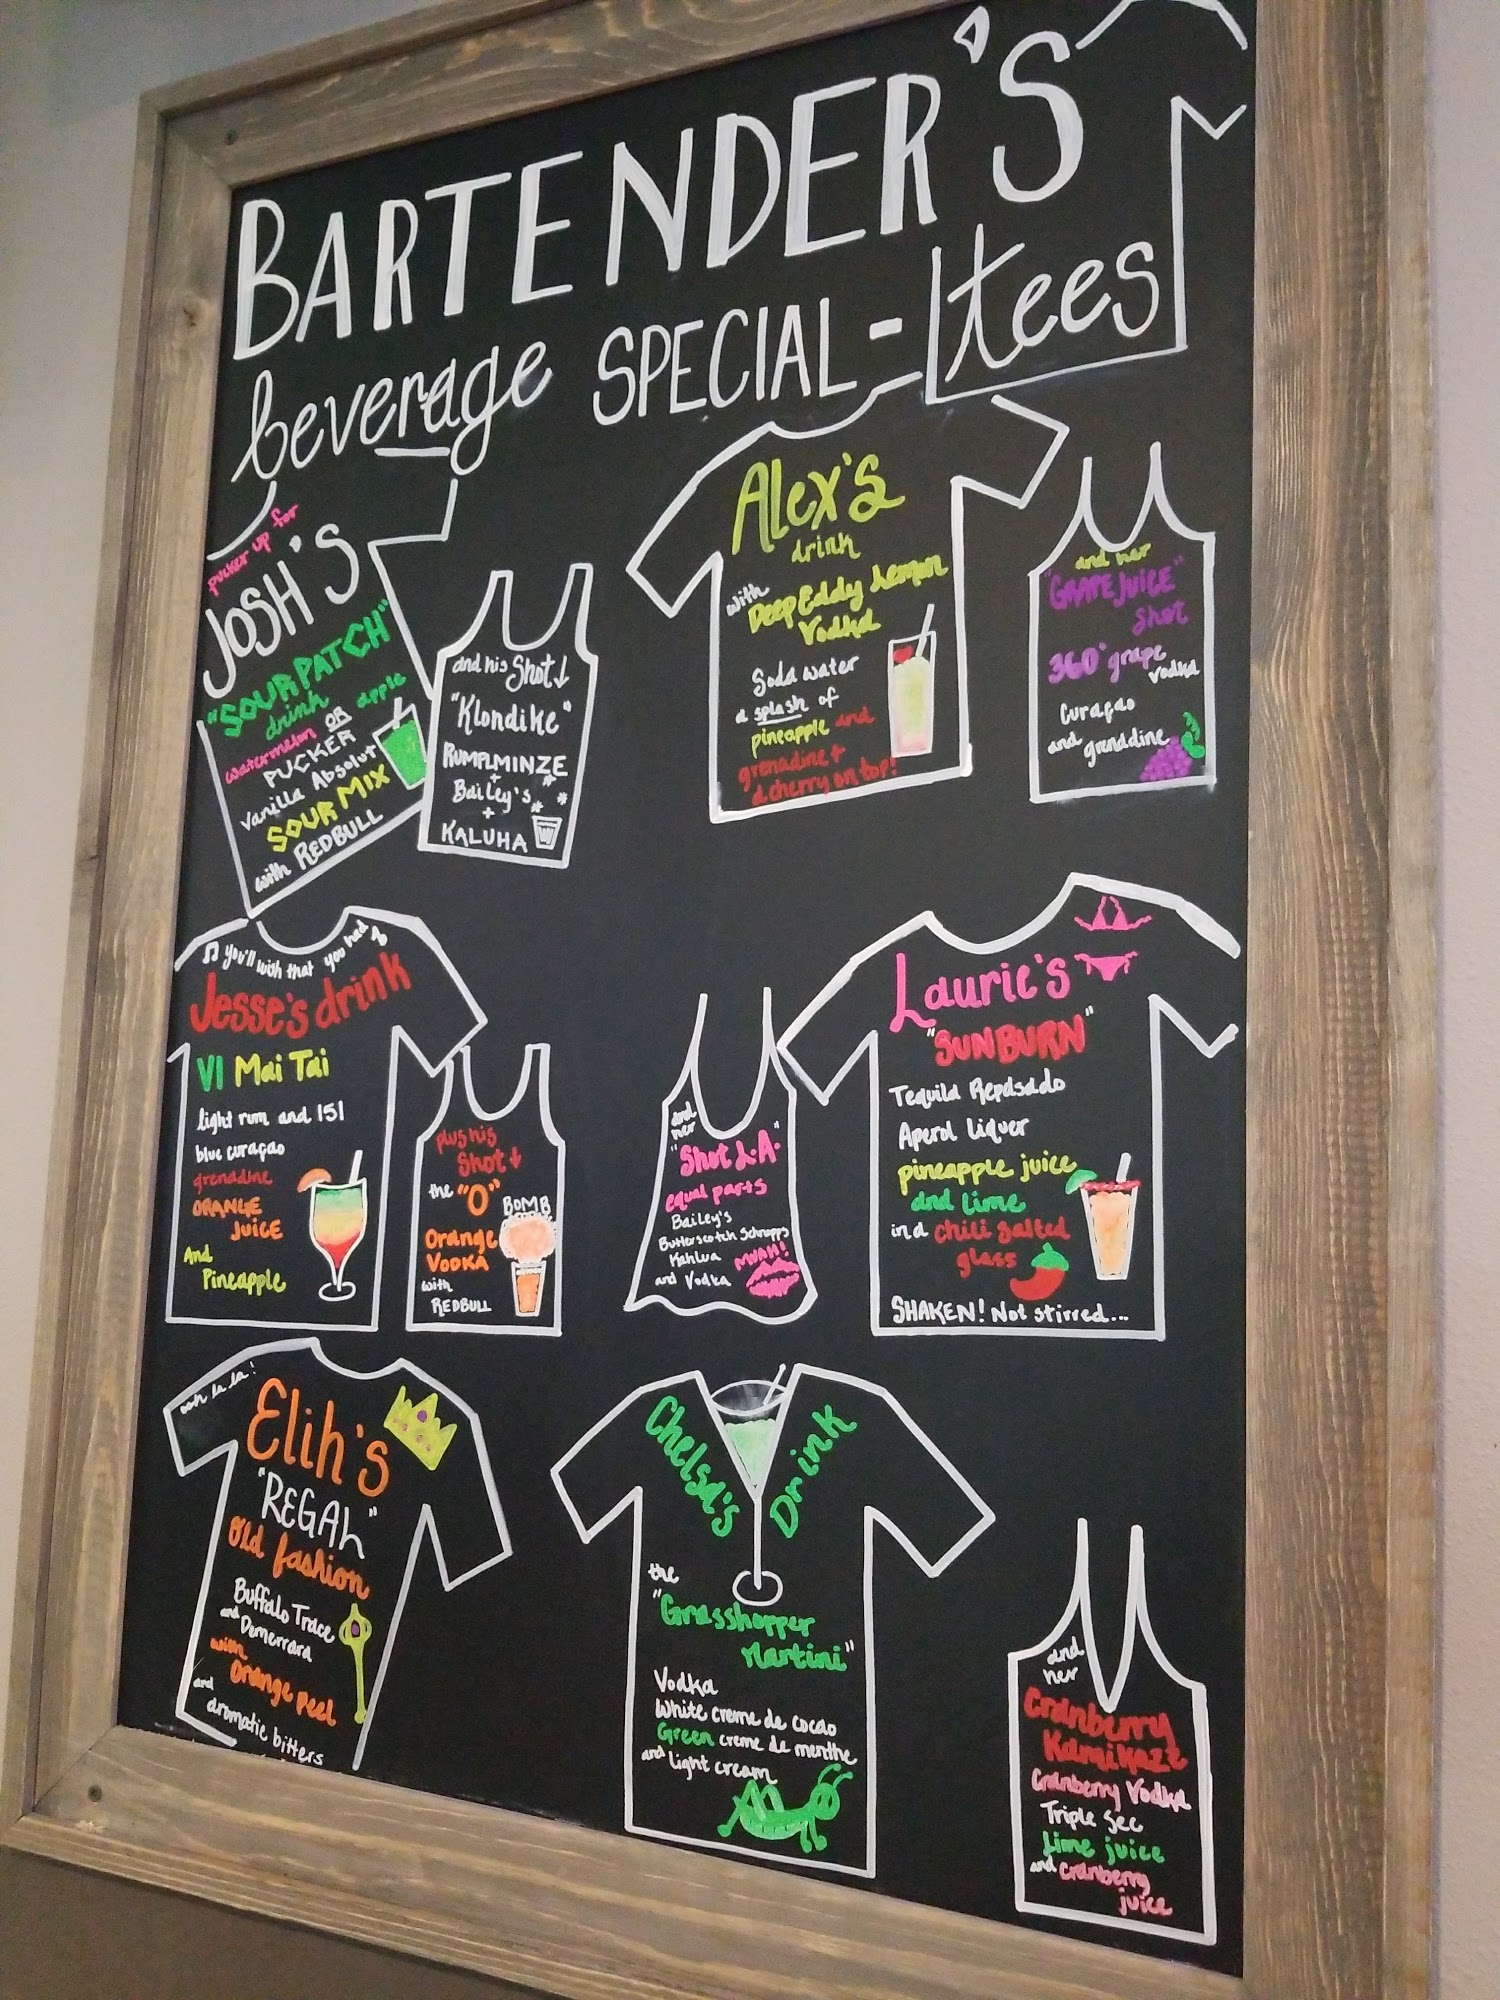 BARTENDER'S
beverage SPECIAL-tees
pucker up for
JOSH'S
"SOUR PATCH"
drink
watermelon OR apple
PUCKER
Vanilla Absolut
SOUR MIX
with REDBULL
and his Shot ↓
"Klondike"
RUMPLMINZE
+
Bailey's
+
KALUHA
Alex's
drink
with Deep Eddy Lemon
Vodka
Soda water
a splash of
pineapple and
grenadine +
a cherry on top!
and her
"GRAPE JUICE"
Shot
360° grape
vodka
Curaçao
and grenadine
♫ you'll wish that you had ♪
Jesse's drink
VI Mai Tai
light rum and 151
blue curaçao
grenadine
ORANGE
JUICE
And
Pineapple
plus his
Shot ↓
the "O"
BOMB
Orange
VODKA
with
REDBULL
and
her
"Shot L.A."
equal parts
Bailey's
Butterscotch Schnapps
Kahlua
and Vodka
MUAH!
Laurie's
"SUNBURN"
Tequila Reposado
Aperol Liquer
pineapple juice
and lime
in a chili salted
glass
SHAKEN! Not stirred...
ooh la la!
Elih's
"REGAL"
Old fashion
Buffalo Trace
and Demerrara
with
orange peel
and
aromatic bitters
Chelsa's Drink
the
"Grasshopper
Martini"
Vodka
White creme de cocao
Green creme de menthe
and light cream
and
her
Cranberry
Kamikaze
Cranberry Vodka
Triple Sec
Lime juice
and cranberry
juice